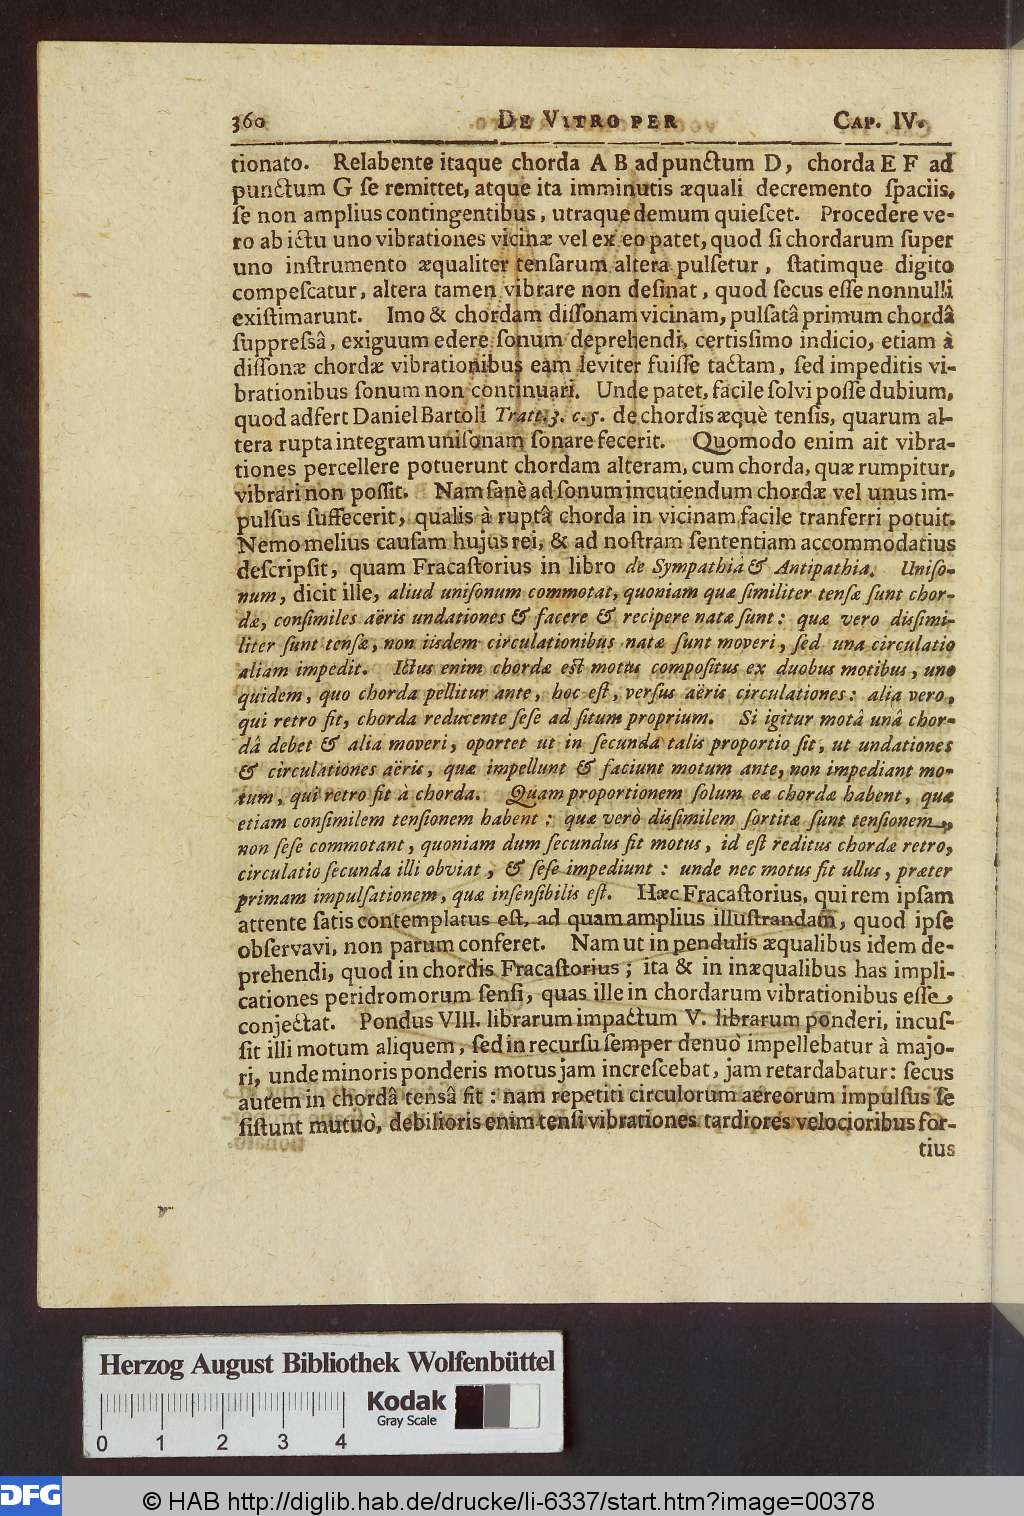 360 DE VITRO PER CAP. IV.
tionato. Relabente itaque chorda A B ad punctum D, chorda E F ad
punctum G ſe remittet, atque ita imminutis æquali decremento ſpaciis,
ſe non amplius contingentibus, utraque demum quieſcet. Procedere ve-
ro ab ictu uno vibrationes vicinæ vel ex eo patet, quod ſi chordarum ſuper
uno inſtrumento æqualiter tenſarum altera pulſetur, ſtatimque digito
compeſcatur, altera tamen vibrare non deſinat, quod ſecus eſſe nonnulli
exiſtimarunt. Imo & chordam diſſonam vicinam, pulſatâ primum chordâ
ſuppreſsâ, exiguum edere ſonum deprehendi, certisſimo indicio, etiam à
diſſonæ chordæ vibrationibus eam leviter fuiſſe tactam, ſed impeditis vi-
brationibus ſonum non continuari. Unde patet, facile ſolvi poſſe dubium,
quod adfert Daniel Bartoli Tratt. 3. c. 5. de chordis æquè tenſis, quarum al-
tera rupta integram uniſonam ſonare fecerit. Quomodo enim ait vibra-
tiones percellere potuerunt chordam alteram, cum chorda, quæ rumpitur,
vibrari non poſſit. Nam ſanè ad ſonum incutiendum chordæ vel unus im-
pulſus ſuffecerit, qualis à ruptâ chorda in vicinam facile tranferri potuit.
Nemo melius cauſam hujus rei, & ad noſtram ſententiam accommodatius
deſcripſit, quam Fracaſtorius in libro de Sympathiâ & Antipathia. Uniſo-
num, dicit ille, aliud uniſonum commotat, quoniam quæ ſimiliter tenſæ ſunt chor-
dæ, conſimiles aëris undationes & facere & recipere natæ ſunt: quæ vero diſſimi-
liter ſunt tenſæ, non iisdem circulationibus natæ ſunt moveri, ſed una circulatio
aliam impedit. Ictus enim chordæ eſt motus compoſitus ex duobus motibus, uno
quidem, quo chorda pellitur ante, hoc eſt, verſus aëris circulationes: alia vero,
qui retro fit, chorda reducente ſeſe ad ſitum proprium. Si igitur motâ unâ chor-
dâ debet & alia moveri, oportet ut in ſecunda talis proportio ſit, ut undationes
& circulationes aëris, quæ impellunt & faciunt motum ante, non impediant mo-
tum, qui retro fit à chorda. Quam proportionem ſolum eæ chordæ habent, quæ
etiam conſimilem tenſionem habent: quæ verò diſſimilem ſortitæ ſunt tenſionem,
non ſeſe commotant, quoniam dum ſecundus fit motus, id eſt reditus chordæ retro,
circulatio ſecunda illi obviat, & ſeſe impediunt: unde nec motus fit ullus, præter
primam impulſationem, quæ inſenſibilis eſt. Hæc Fracaſtorius, qui rem ipſam
attente ſatis contemplatus eſt, ad quam amplius illuſtrandam, quod ipſe
obſervavi, non parum conferet. Nam ut in pendulis æqualibus idem de-
prehendi, quod in chordis Fracaſtorius; ita & in inæqualibus has impli-
cationes peridromorum ſenſi, quas ille in chordarum vibrationibus eſſe
conjectat. Pondus VIII. librarum impactum V. librarum ponderi, incuſ-
ſit illi motum aliquem, ſed in recurſu ſemper denuò impellebatur à majo-
ri, unde minoris ponderis motus jam increſcebat, jam retardabatur: ſecus
autem in chordâ tensâ fit: nam repetiti circulorum aereorum impulſus ſe
ſiſtunt mutuò, debilioris enim tenſi vibrationes tardiores velocioribus for-
tius
Herzog August Bibliothek Wolfenbüttel
Kodak
Gray Scale
0 1 2 3 4
DFG
© HAB http://diglib.hab.de/drucke/li-6337/start.htm?image=00378